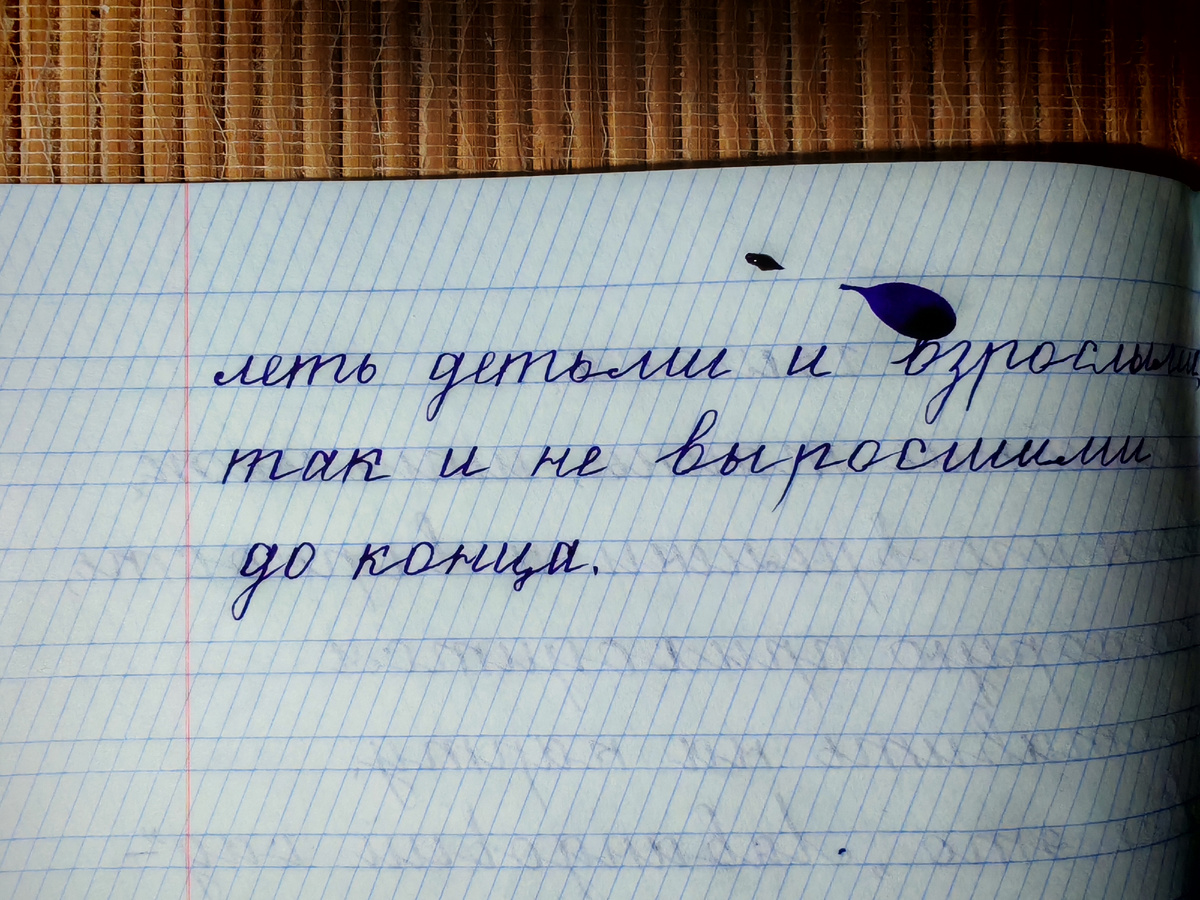 леть детьми и взрослыми,
так и не выросшими
до конца.